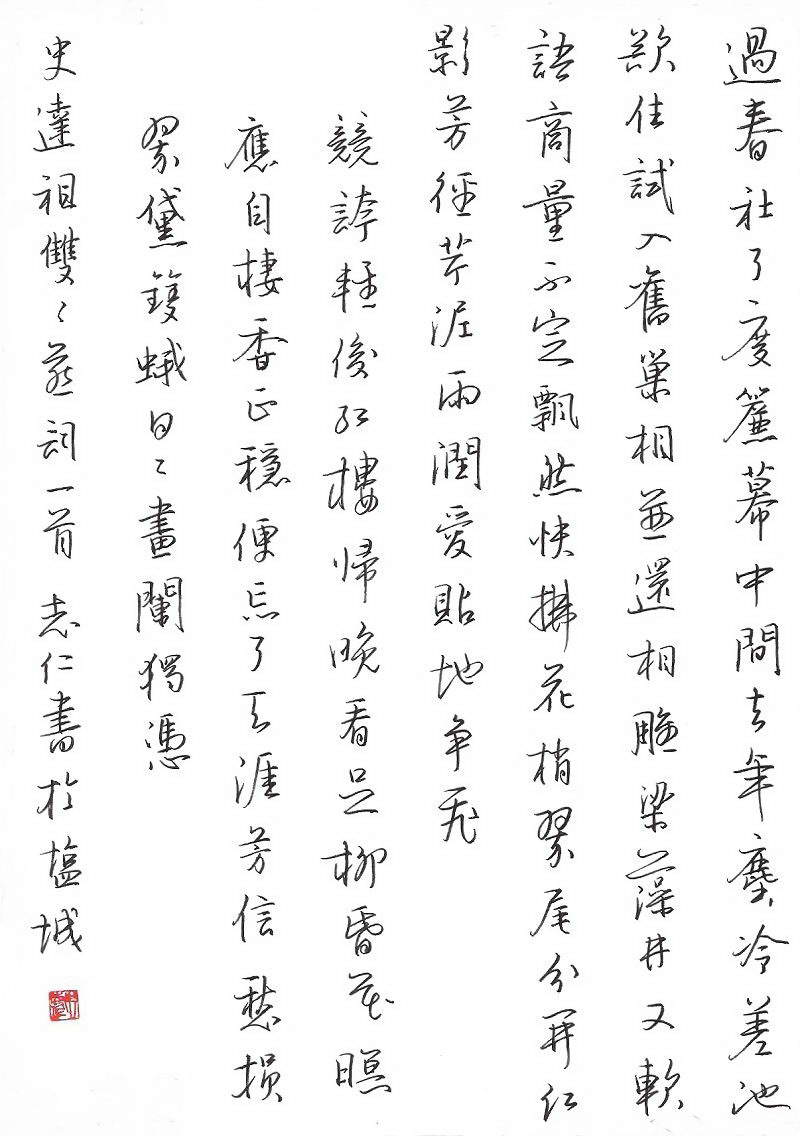 過春社了度簾幕中間去年塵冷差池
欲住試入舊巢相並還相雕梁藻井又軟
語商量不定飄然快拂花梢翠尾分開红
影芳徑芹泥雨潤愛貼地爭飛
競誇輕俊红樓歸晚看足柳昏花暝
應自棲香正穩便忘了天涯芳信愁損
翠黛雙蛾日〻畫闌獨憑
史達祖雙〻燕詞一首 志仁書於塩城